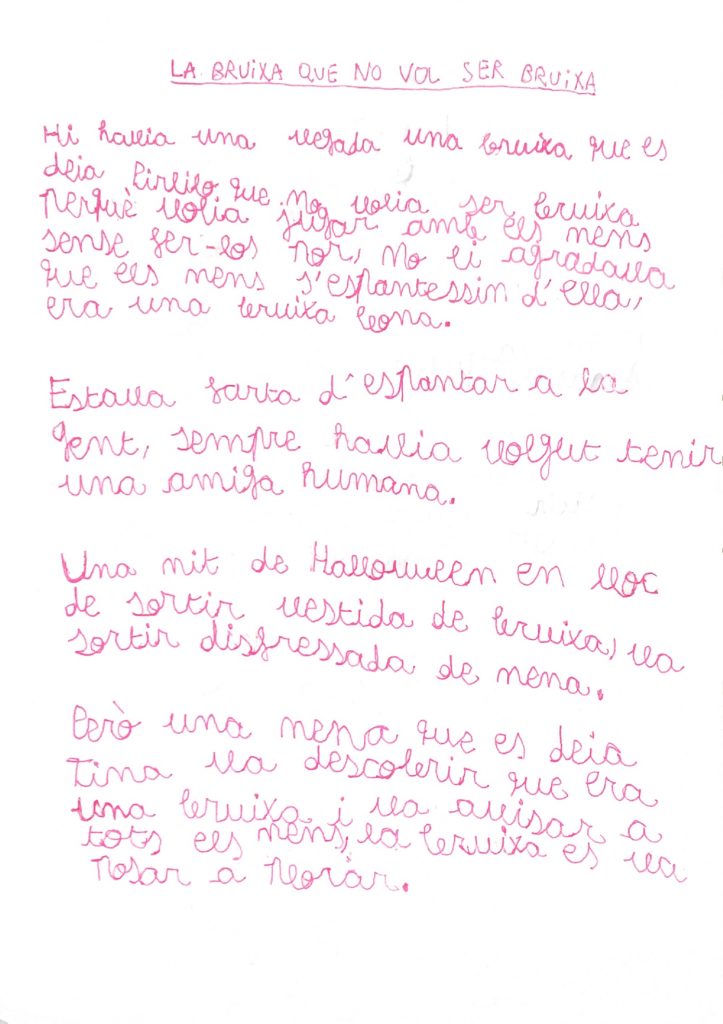 LA BRUIXA QUE NO VOL SER BRUIXA
Hi havia una vegada una bruixa que es
deia que no volia ser bruixa
perquè volia jugar amb els nens
sense fer-los por, no li agradava
que els nens s'espantessin d'ella,
era una bruixa bona.
Estava farta d'espantar a la
gent, sempre havia volgut tenir
una amiga humana.
Una nit de Halloween en lloc
de sortir vestida de bruixa, va
sortir disfressada de nena.
Però una nena que es deia
Tina va descobrir que era
una bruixa i va avisar a
tots els nens, la bruixa es va
posar a ploràr.